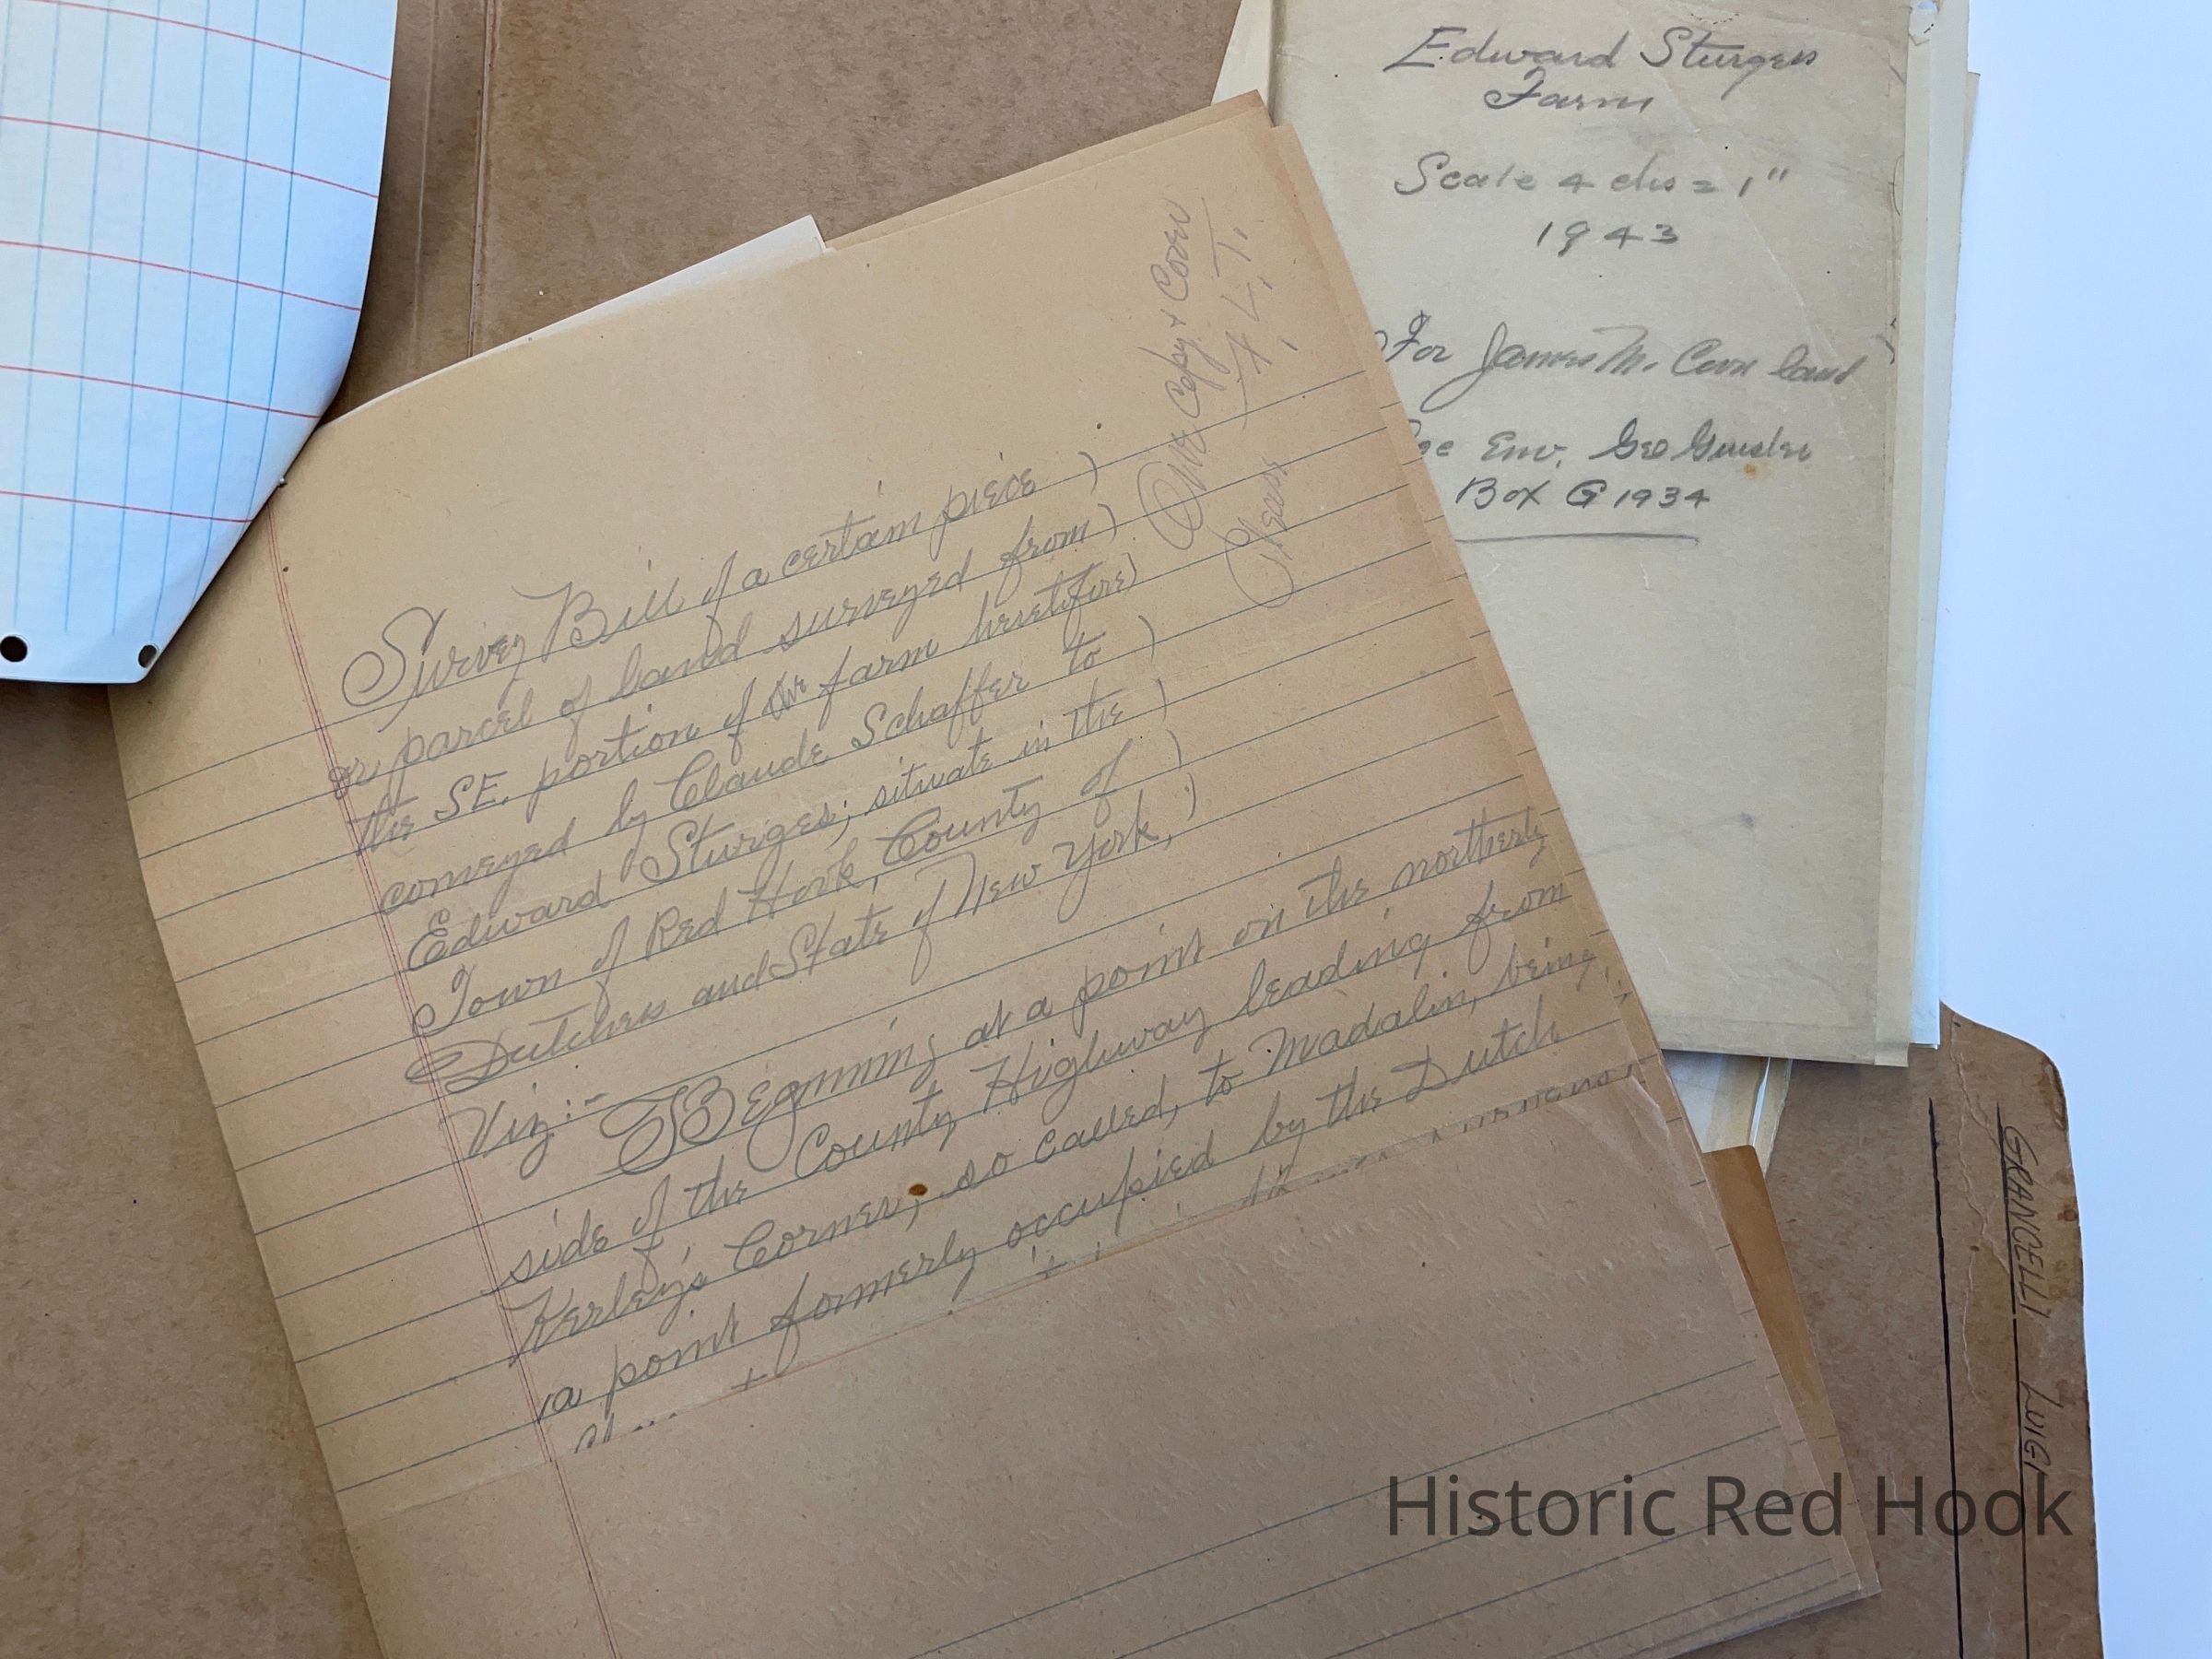 Edward Sturges
Farm
Scale 4 chs = 1"
1943
For James M. Cookingham
Env. Geo
Box G 1934
One Copy & Cover
H. L. T.
Please
Survey Bill of a certain piece )
or parcel of land surveyed from )
the SE. portion of the farm heretofore )
conveyed by Claude Schaffer to )
Edward Sturges; situate in the )
Town of Red Hook, County of )
Dutchess and State of New York, )
Viz:- Beginning at a point on the northerly
side of the County Highway leading from
Kerley's Corner, so called, to Madalin, being
a point formerly occupied by the Dutch
GRANCELLI LUIGI
Historic Red Hook